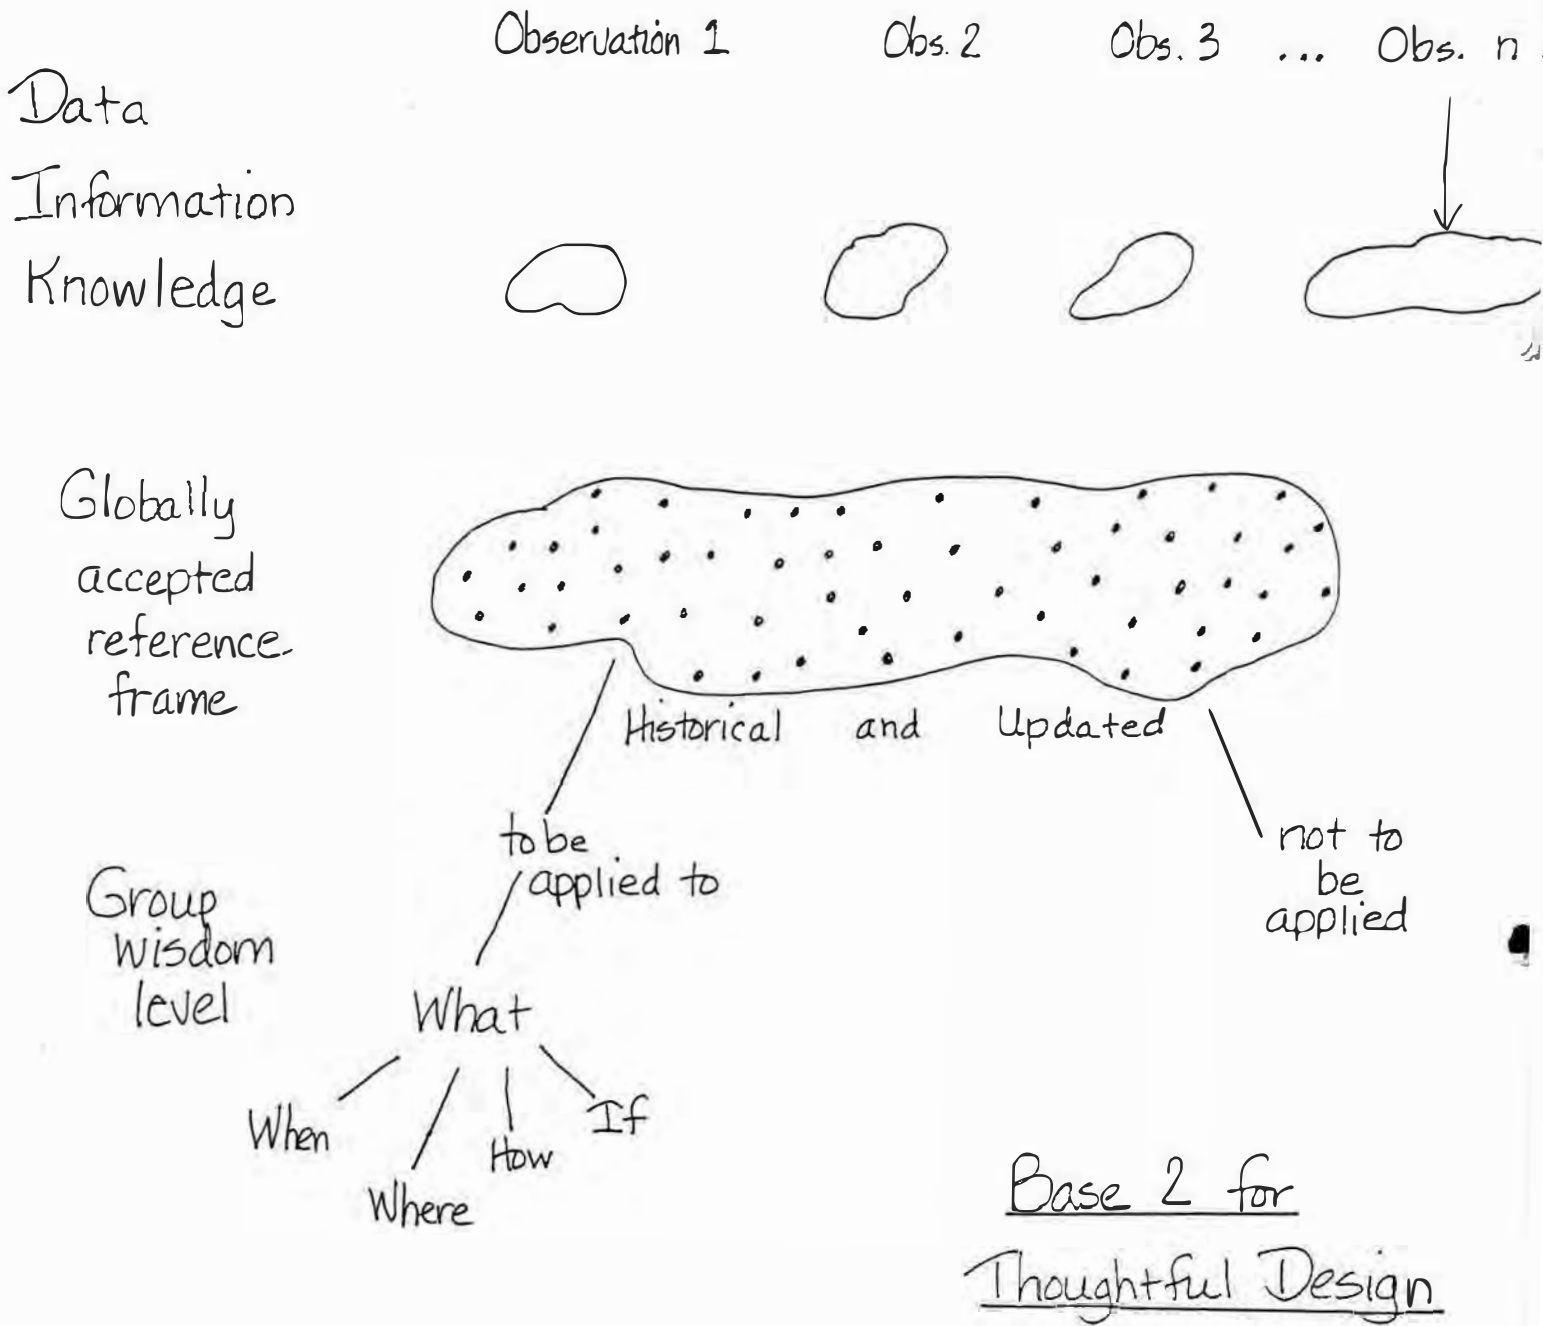 Observation 1 Obs. 2 Obs. 3 ... Obs. n
Data
Information
Knowledge
Globally
accepted
reference
frame
Historical and Updated
to be
applied to
not to
be
applied
Group
wisdom
level
What
When
Where
How
If
Base 2 for
Thoughtful Design